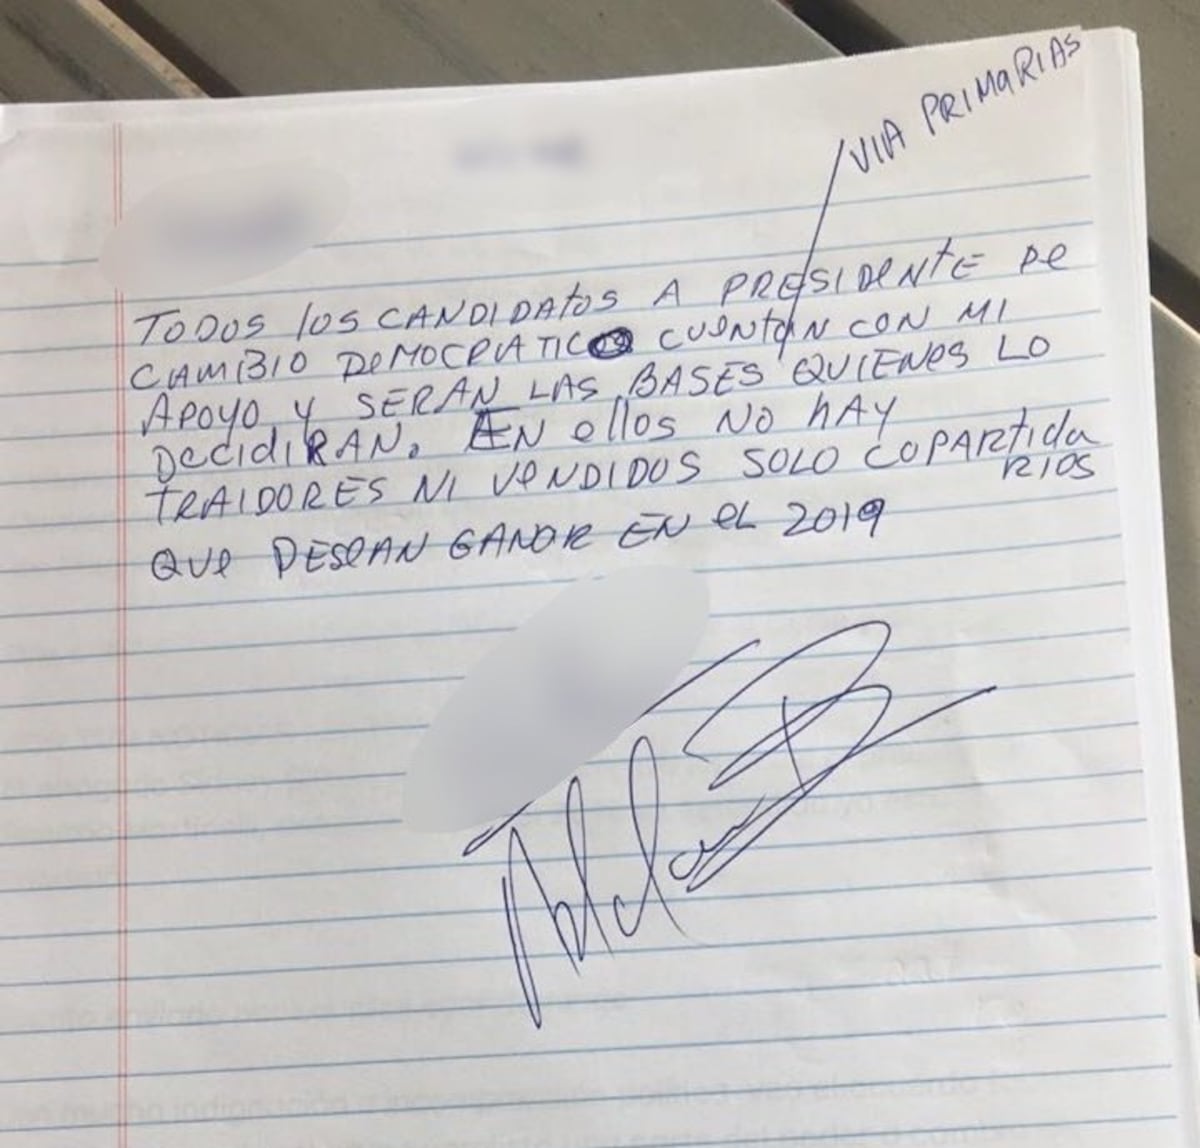 VIA PRIMARIAS
TODOS los CANDIDATOS A PRESIDENTE De
CAMBIO DeMOCRATICO CUeNTAN CON MI
APOYO Y SERAN LAS BASES QUIENES LO
DecidiRAN. EN ellos NO hAY
TRAIDORES NI VeNDIDOS SOLO COPARtida
RIOS
QUe DESeAN GANAR EN eL 2019